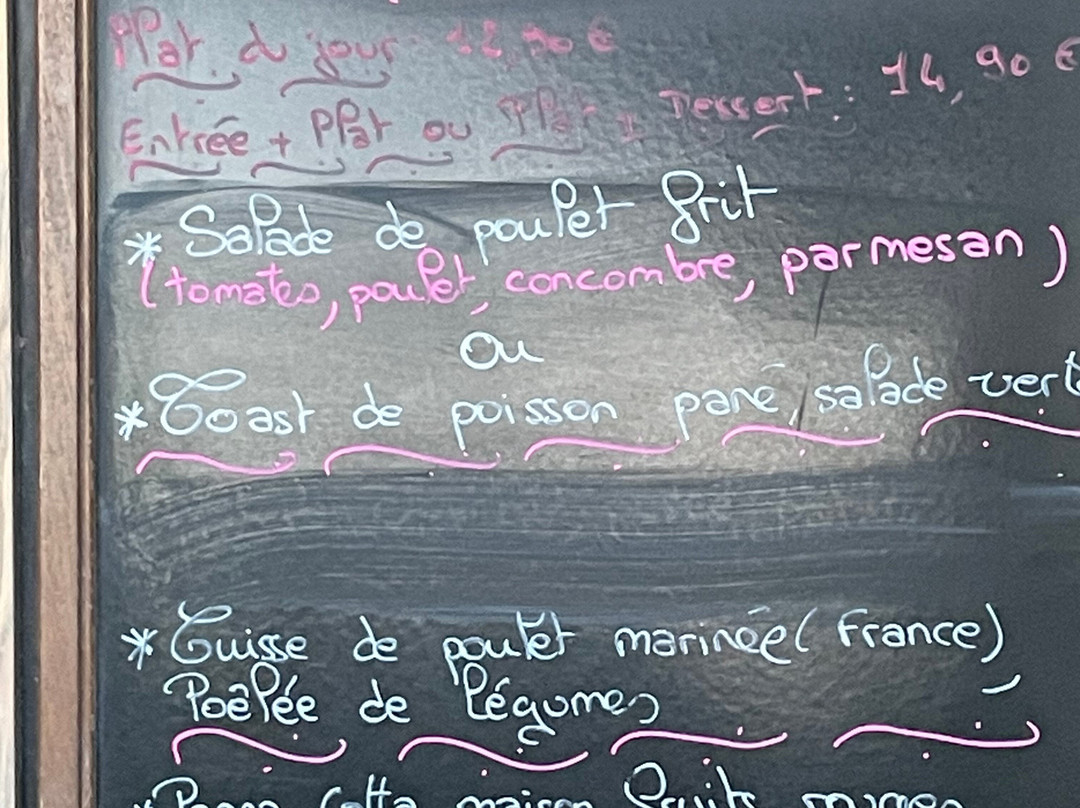 Plat du jour 12,90 €
Entrée + Plat ou Plat + Dessert : 14,90 €
* Salade de poulet frit
(tomates, poulet, concombre, parmesan)
Ou
* Toast de poisson pané, salade verte
* Cuisse de poulet marinée (France)
Poêlée de légumes
* Panna Cotta maison fruits rouges